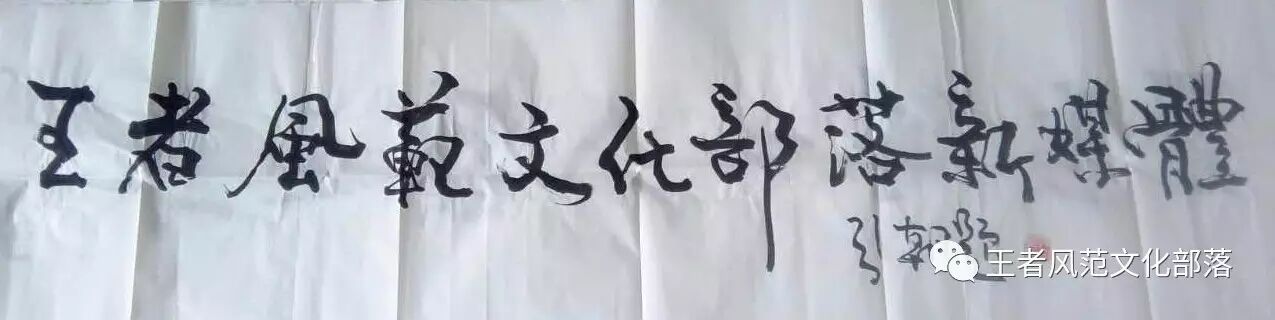 王者風範文化部落新媒體
引朝題
王者风范文化部落